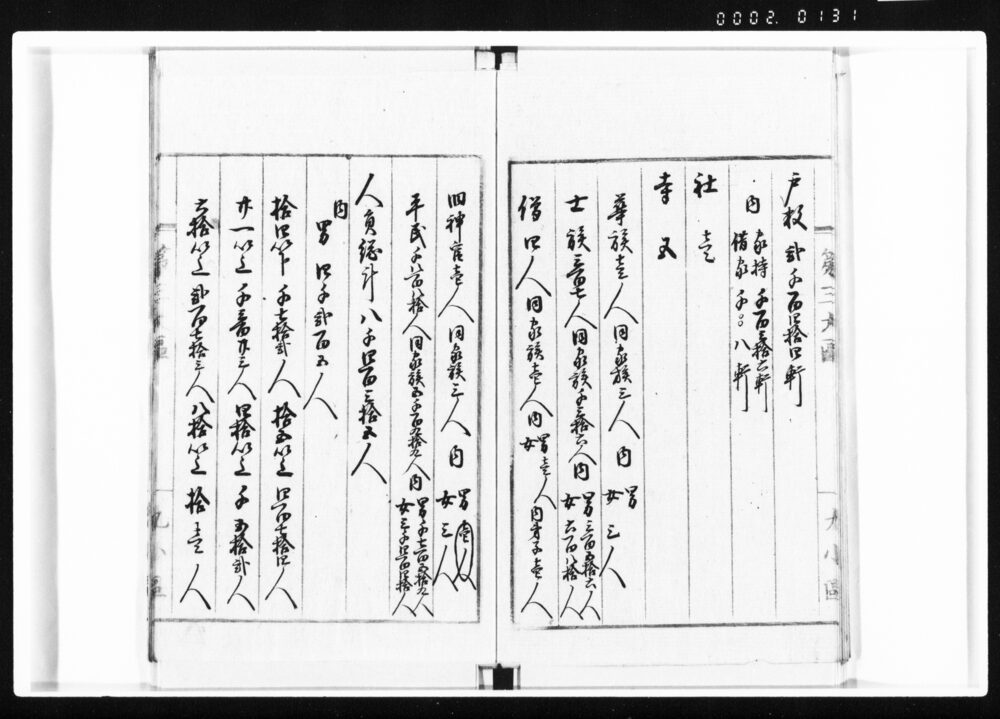 0002. 0131
戸数 弐千百四拾四軒
内 家持 千百三拾六軒
借家 千〇八軒
社 壱
寺 五
華族壱人 同家族三人 内 男
女 三人
士族三百七人 同家族千三拾六人 内 男三百五拾六人
女六百八拾人
僧四人 同家族壱人 内 男壱人
女 内弟子壱人
旧神官壱人 同家族三人 内 男壱人
女三人
平民千八百八拾人 同家族五千百九拾九人 内 男千七百五拾九人
女三千四百四拾人
人員総計 八千四百三拾五人
内 男 四千弐百五人
拾四年下 千七拾弐人 拾五年以上 四百七拾四人
廿一年以上 千三百廿三人 四拾年以上 千五拾弐人
六拾年以上 弐百七拾三人 八拾年以上 拾壱人